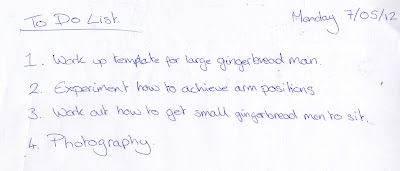 To Do List. Monday 7/05/12
1. Work up template for large gingerbread man.
2. Experiment how to achieve arm positions
3. Work out how to get small gingerbread men to sit.
4. Photography.